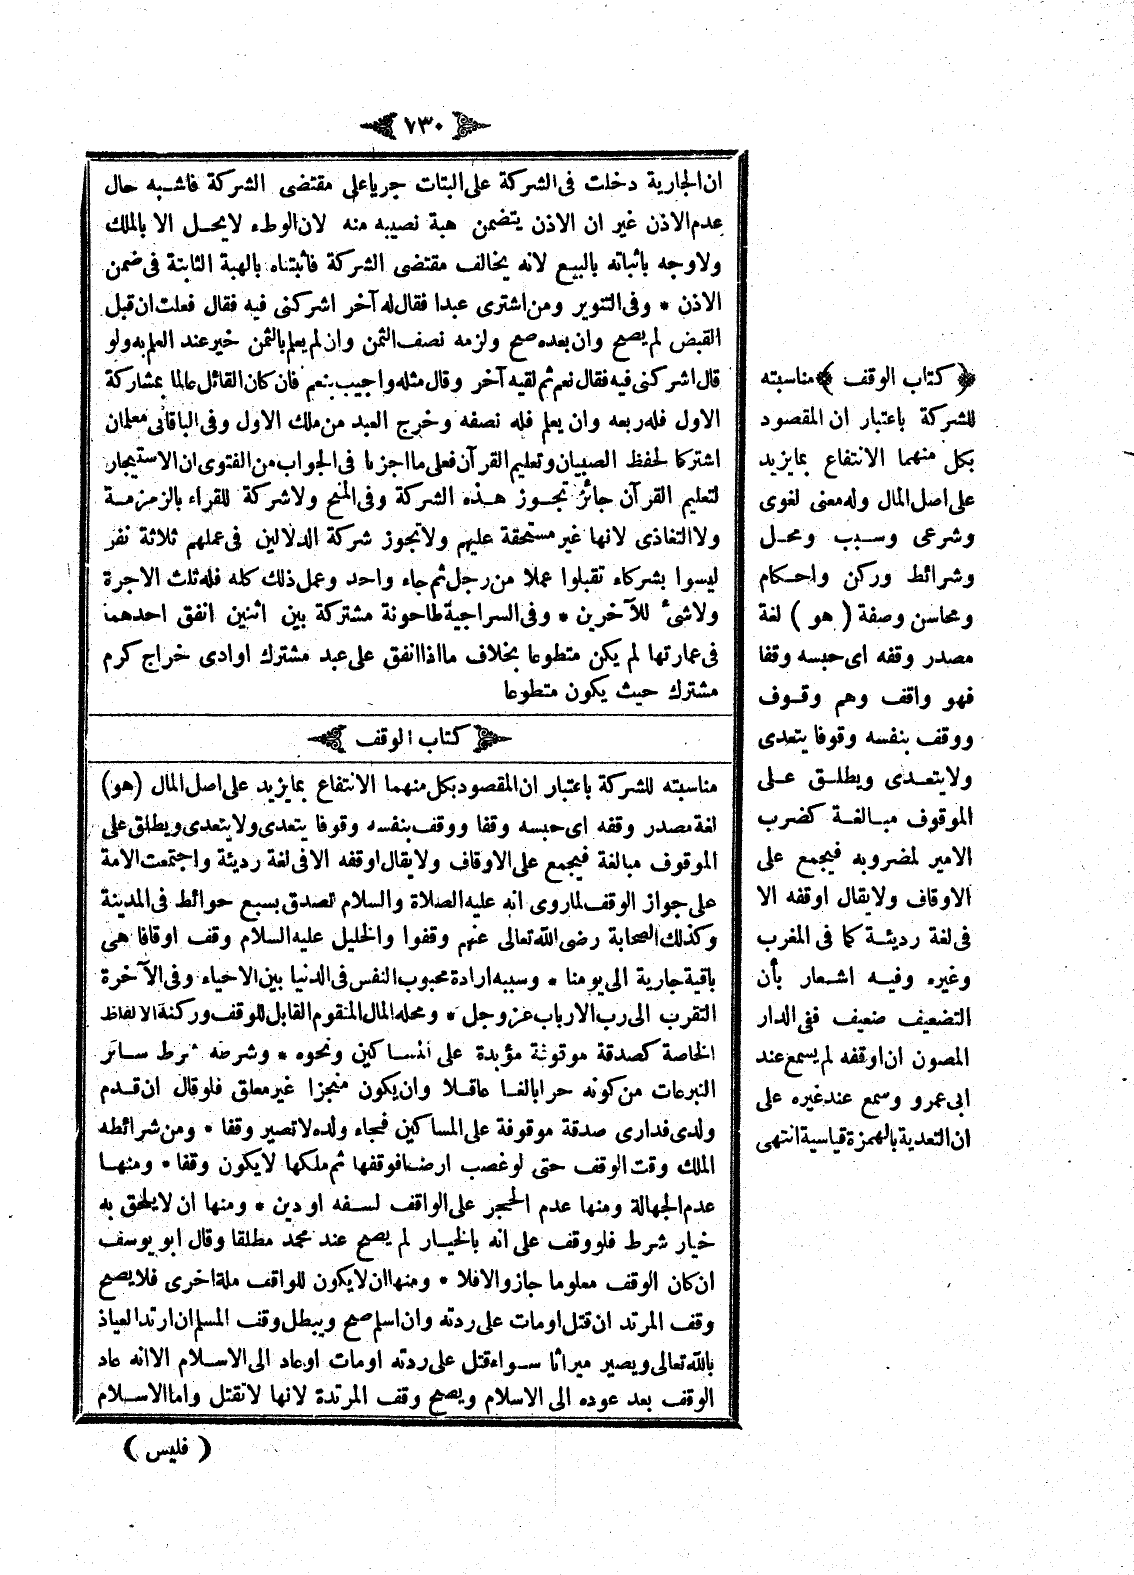 ٧٣٠
ان الجارية دخلت فى الشركة على البتات جريا على مقتضى الشركة فاشبه حال
عدم الاذن غير ان الاذن يتضمن هبة نصيبه منه لان الوطء لا يحل الا بالملك
ولا وجه باثباته بالبيع لانه يخالف مقتضى الشركة فأثبتناه بالهبة الثابتة فى ضمن
الاذن * وفى التنوير ومن اشترى عبدا فقال له آخر اشركنى فيه فقال فعلت ان قبل
القبض لم يصح وان بعده صح ولزمه نصف الثمن وان لم يعلم بالثمن خير عند العلم به ولو
قال اشركنى فيه فقال نعم ثم لقيه آخر وقال مثله واجيب بنعم فان كان القائل عالما بمشاركة
الاول فله ربعه وان يعلم فله نصفه وخرج العبد من ملك الاول وفى الباقانى معلمان
اشتركا لحفظ الصبيان وتعليم القرآن فعلى ما اجزنا فى الجواب من الفتوى ان الاستيجار
لتعليم القرآن جائز تجوز هذه الشركة وفى المنح ولا شركة للقراء بالزمزمة
ولا التغاذى لانها غير مستحقة عليهم ولا تجوز شركة الدلالين فى عملهم ثلاثة نفر
ليسوا بشركاء تقبلوا عملا من رجل ثم جاء واحد وعمل ذلك كله فله ثلث الاجرة
ولا شىء للآخرين * وفى السراجية طاحونة مشتركة بين اثنين انفق احدهما
فى عمارتها لم يكن متطوعا بخلاف ما اذا انفق على عبد مشترك او ادى خراج كرم
مشترك حيث يكون متطوعا
كتاب الوقف
مناسبته للشركة باعتبار ان المقصود بكل منهما الانتفاع بما يزيد على اصل المال (هو)
لغة مصدر وقفه اى حبسه وقفا ووقف بنفسه وقوفا يتعدى ولا يتعدى ويطلق على
الموقوف مبالغة فيجمع على الاوقاف ولا يقال اوقفه الا فى لغة رديئة واجتمعت الامة
على جواز الوقف لما روى انه عليه الصلاة والسلام تصدق بسبع حوائط فى المدينة
وكذلك الصحابة رضى الله تعالى عنهم وقفوا والخليل عليه السلام وقف اوقافا هى
باقية جارية الى يومنا * وسببه ارادة محبوب النفس فى الدنيا بين الاحياء وفى الآخرة
التقرب الى رب الارباب عز وجل * ومحله المال المتقوم القابل للوقف وركنه الالفاظ
الخاصة كصدقة موقوفة مؤبدة على المساكين ونحوه * وشرطه شرط سائر
التبرعات من كونه حرا بالغا عاقلا وان يكون منجزا غير معلق فلو قال ان قدم
ولدى فدارى صدقة موقوفة على المساكين فجاء ولده لا تصير وقفا * ومن شرائطه
الملك وقت الوقف حتى لو غصب ارضا فوقفها ثم ملكها لا يكون وقفا * ومنها
عدم الجهالة ومنها عدم الحجر على الواقف لسفه او دين * ومنها ان لا يلحق به
خيار شرط فلو وقف على انه بالخيار لم يصح عند محمد مطلقا وقال ابو يوسف
ان كان الوقف معلوما جاز والا فلا * ومنها ان لا يكون للواقف ملة اخرى فلا يصح
وقف المرتد ان قتل او مات على ردته وان اسلم صح ويبطل وقف المسلم ان ارتد العياذ
بالله تعالى ويصير ميراثا سواء قتل على ردته او مات او عاد الى الاسلام الا انه عاد
الوقف بعد عوده الى الاسلام ويصح وقف المرتدة لانها لا تقتل واما الاسلام
( فليس )
﴿ كتاب الوقف ﴾ مناسبته
للشركة باعتبار ان المقصود
بكل منهما الانتفاع بما يزيد
على اصل المال وله معنى لغوى
وشرعى وسبب ومحل
وشرائط وركن واحكام
ومحاسن وصفة ( هو ) لغة
مصدر وقفه اى حبسه وقفا
فهو واقف وهم وقوف
ووقف بنفسه وقوفا يتعدى
ولا يتعدى ويطلق على
الموقوف مبالغة كضرب
الامير لمضروبه فيجمع على
الاوقاف ولا يقال اوقفه الا
فى لغة رديئة كما فى المغرب
وغيره وفيه اشعار بأن
التضعيف ضعيف ففى الدار
المصون ان اوقفه لم يسمع عند
ابى عمرو وسمع عند غيره على
ان التعدية بالهمزة قياسية انتهى